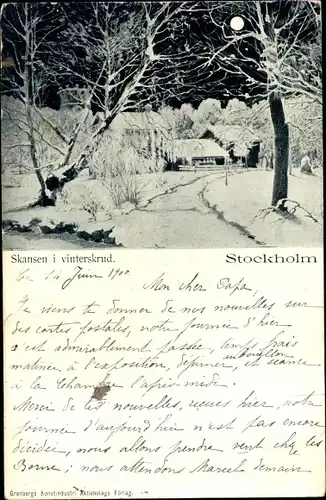 Skansen i vinterskrud.
Stockholm
Ce 14 Juin 1900.
Mon cher Papa,
Je viens te donner de nos nouvelles sur
des cartes postales, notre journée d'hier
s'est admirablement passée, temps frais
matinée à l'exposition, déjeuner, et séance
à la Chambre l'après-midi.
Merci de tes nouvelles, reçues hier, notre
journée d'aujourd'hui n'est pas encore
décidée, nous allons prendre vent chez les
Borne; nous attendons Marcel demain
Granbergs Konstindustri Aktiebolags Förlag.